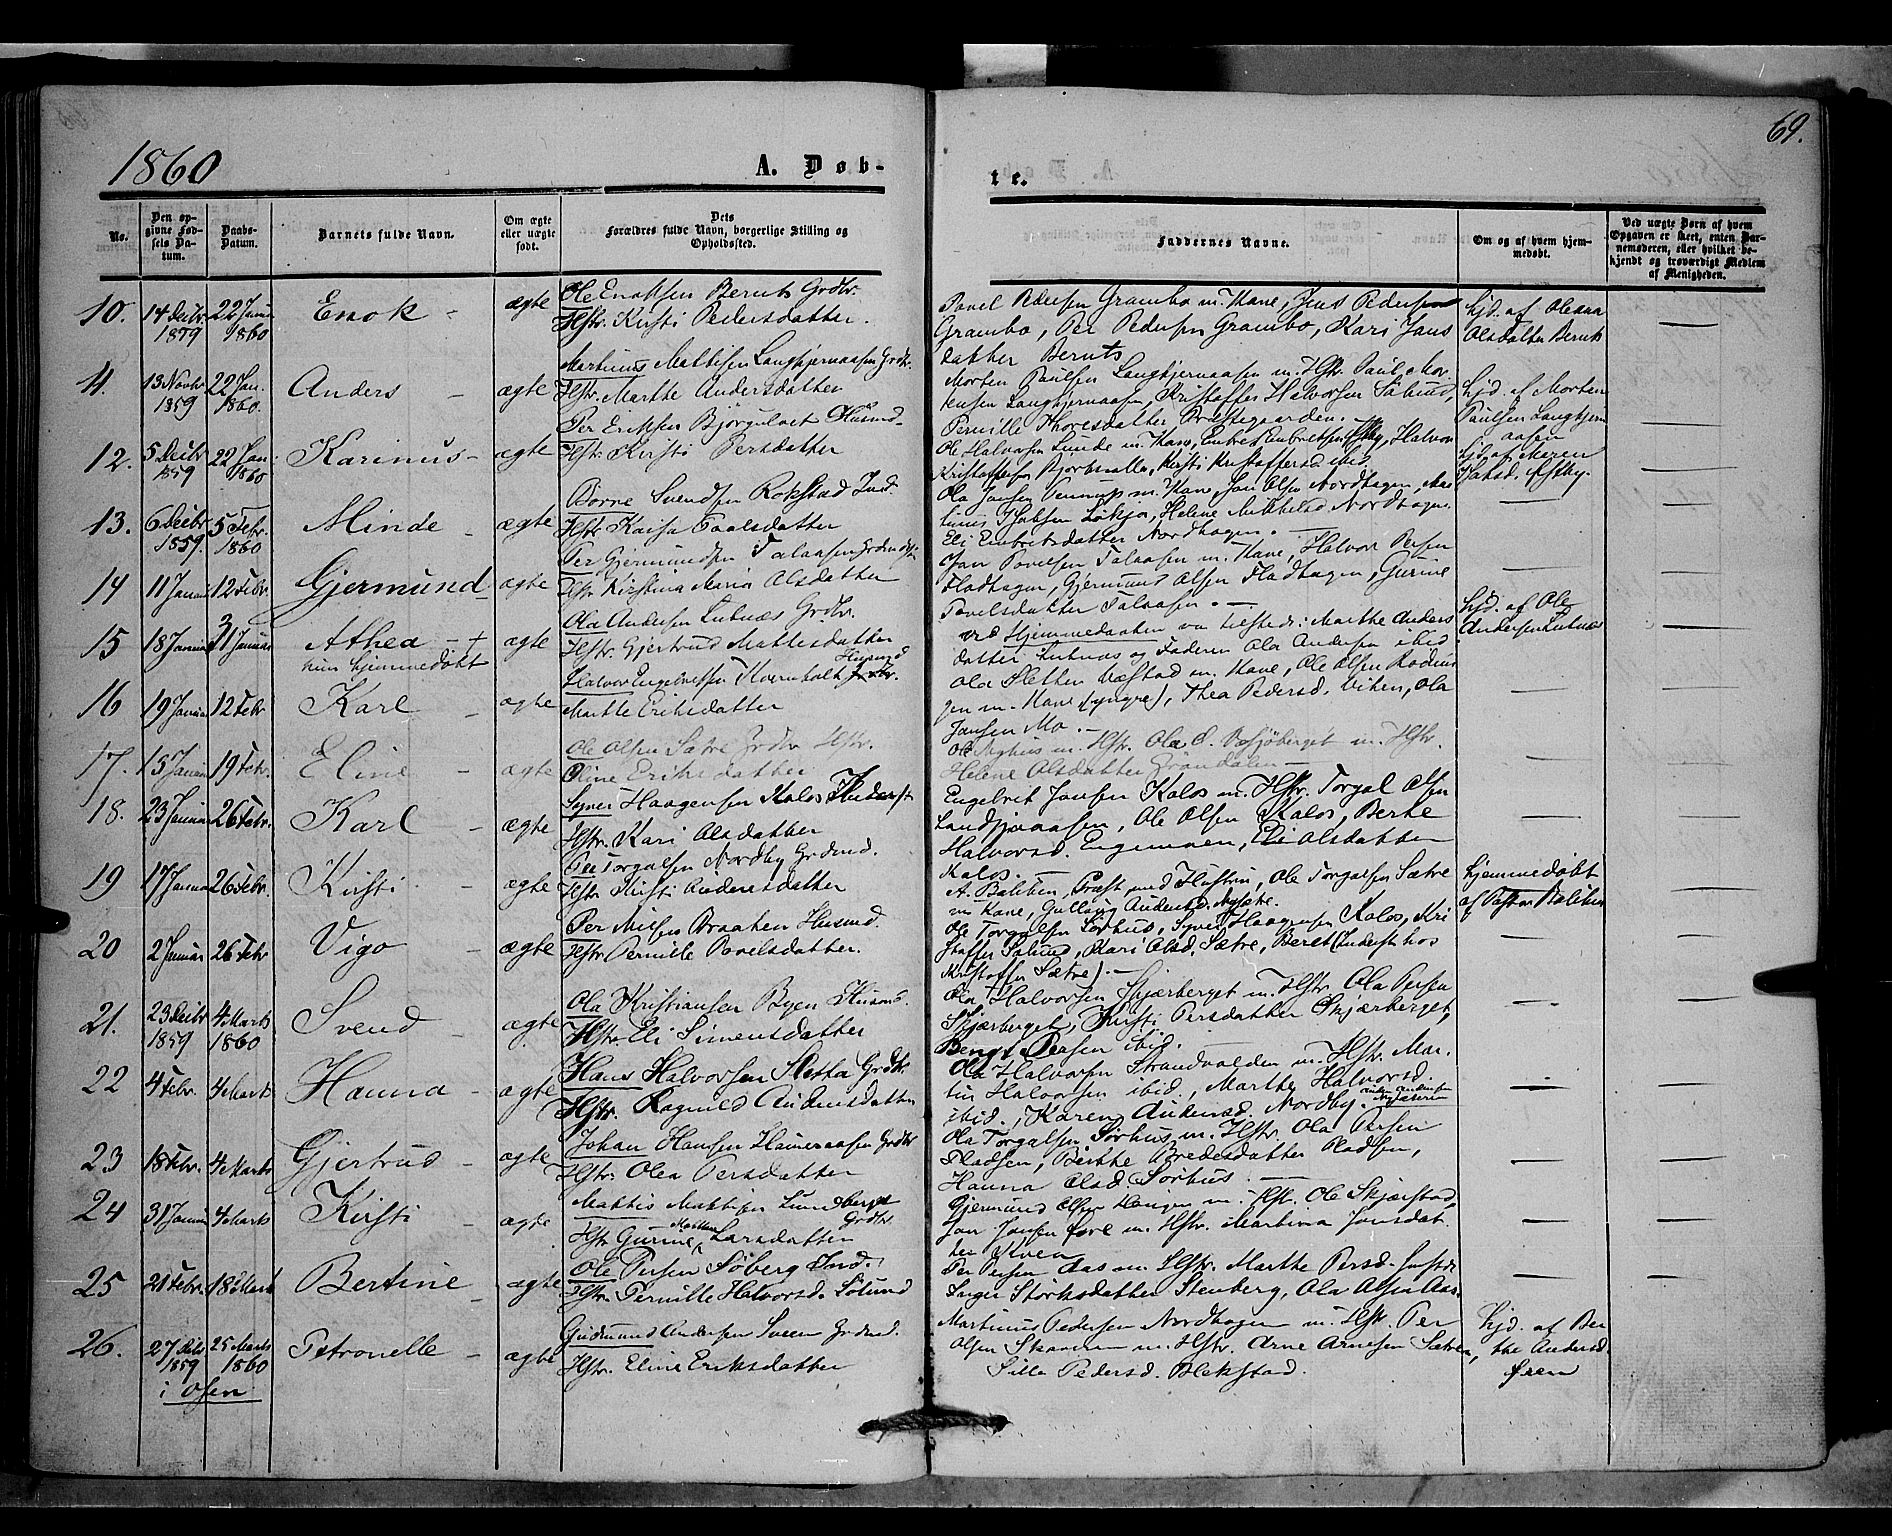 1860
A. Døb-
te.
69.
No.
Den opgivne Fødsels Datum.
Daabs-Datum.
Barnets fulde Navn.
Om ægte eller uægte født.
Dets Forældres fulde Navn, borgerlige Stilling og Opholdssted.
Faddernes Navne.
Om og af hvem hjemmedøbt.
Ved uægte Børn af hvem Opgaven er skeet, enten Barnemoderen, eller hvilket bekjendt og troværdigt Medlem af Menigheden.
10. 14 Decbr 1859 22 Janu 1860 Enok - ægte Ole Enoksen Bernts Grdbr. Hstr. Kirsti Pedersdatter.
Povel Pedersen Grambo m. Kone, Jens Pedersen
Grambo, Per Pedersen Grambo, Kari Jans
datter Bernts
hjd. af Oleana
Olsdatter Bernts
4. 13 Novbr 1859 22 Jan. 1860. Anders - ægte Martinus Mattisen Langkjernaasen Grdbr. Hstr. Marthe Andersdatter
Morten Paulsen Langkjernaasen m. Hstr. Paul Mor
tensen Langkjernaasen, Kristoffer Halvorsen Sølund,
Pernille Thoresdatter, Præstegaarden.
hjd. af Morten
Paulsen Langkjern
aasen
12. 5 Decbr 1859 22 Jan. 1860 Karinus - ægte Per Eriksen Husmd. Hstr. Kirsti Persdatter
Ole Halvorsen Lunde m. Kone, Halvor
Kristoffersen Kirsti Kristoffersd. ibid.
hjd. af Maren
13. 6 Decbr 1859. 5 Febr. 1860 Minde - ægte Børre Svendsen Rokstad Ind. Hstr. Kaisa Paalsdatter
Ola Jansen m. Kone, Jan Olsen Nordhagen,
Helene Nordhagen
Eli Embretsdatter Nordhagen. -
14 11 Januar 12 Febr. Gjermund - ægte Per Gjermundsen Falaasen Hstr. Kristina Maria Olsdatter
Jan Povelsen Falaasen m. Kone, Halvor Persen
Flodhagen, Gjermund Olsen Flodhagen, Gurine
Povelsdatter Falaasen. -
15 18 Januar 31 Januar Athea - + hun hjemmedøbt ægte Ola Andersen Lutnæs Grdbr. Hstr. Gjertrud Mattesdatter
ved Hjemmedaaben var tilstede: Marthe Anders
datter Lutnæs og Faderen Ola Andersen ibid
hjd. af Ole
Andersen Lutnæs
16 19 Januar 12 Febr Karl - ægte Halvor Engebretsen Kvernholt Husmd Marthe Eriksdatter
Ola Sletten Væstad m. Kone, Ole Olsen
gen m. Kone (yngre), Thea Pedersd. Viken, Ola
Jansen Mo. -
17. 15 Januar 19 Febr. Eline - ægte Ole Olsen Sætre Grdbr Hstr. Oline Eriksdatter
Ole Nyhus m. Hstr. Ola O. m. Hstr.
Helene Olsdatter Grøndalen -
18. 23 Januar 26 Febr. Karl - ægte Syver Haagensen Kolos Hstr. Kari Olsdatter
Engebrit Jansen Kolos m. Hstr. Torgal Olsen
Landsjøaasen, Ole Olsen Kolos, Berte
Halvorsd. Engemoen, Eli Olsdatter
Kolos. -
19 17 Januar 26 Febr. Kirsti - ægte Ole Torgalsen Nordby Grdmd. Hstr. Kirsti Andersdatter
A. Balchen, Præst med Hustru, Ole Torgalsen Sætre
m Kone, Gullaug
hjemmedøbt
af Pastor Balchen
20 2 Januar 26 Febr Vigo - ægte Per Nilsen Braaten Husmd. Hstr. Pernille Povelsdatter.
Ole Torgalsen Sørhus, Syver Haagensen Kolos, Kri
stoffer Sølund, Kari Olsd. Sætre, Beret hos
Kristoffer Sætre). -
21. 23 Decbr 1859 4 Marts 1860 Svend - ægte Ola Kristiansen Byen Husmd. Hstr. Eli Simensdatter
Ola Halvorsen Skjærberget m. Hstr. Ola Persen
Skjærberget, Kirsti Persdatter Skjærberget,
Bengt Persen ibid. -
22 4 Febr. 4 Marts Hanna - ægte Hans Halvorsen Sletta Grdbr. Hstr. Ragnild Audensdatter
Ola Halvorsen Strandvolden m. Hstr. Mar
tin Halvorsen ibid., Marthe Halvorsd.
ibid., Karen Audensd. Nordby.
23 18 Febr. 4 Marts Gjertrud - ægte Johan Hansen Grdbr Hstr. Olea Persdatter
Ola Torgalsen Sørhus m. Hstr Ola Persen
Pladsen, Birthe Bredesdatter Pladsen,
Hanna Olsd. Sørhus. -
24 31 Januar 4 Marts Kirsti - ægte Mattis Mattisen Lundberget Grdbr. Hstr. Gurine Mathea Larsdatter
Gjermund Olsen m. Hstr. Ole Skjærstad,
Jan Jansen Øvre m. Hstr. Martina Jansdat
ter Kven
25 21 Febr. 18 Marts Bertine - ægte Ole Persen Søberg Ind. Hstr. Pernille Halvorsd. Sølund
Per Persen Aas m. Hstr. Marthe Persd.
Inger Størksdatter Stenberg, Ola Olsen Aas.
26. 27 Decbr 1859 i Osen 25 Marts 1860 Petronelle - ægte Gudmund Andersen Sveen Grdmd. Hstr. Eline Eriksdatter
Martinus Pedersen Nordhagen m. Hstr. Per
Olsen m. Hstr. Arne Arnesen Sætre,
Sille Pedersd. Blekstad.
hjd. af Ber
the Andersd.